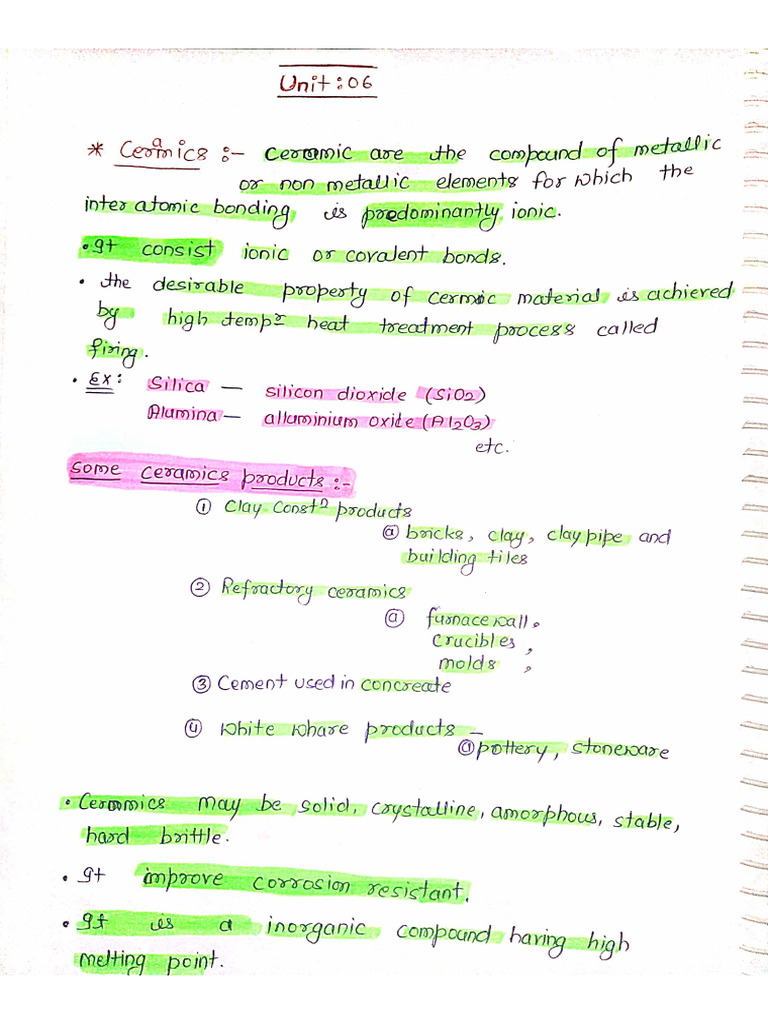 Unit : 06
* Ceramics :- Ceramic are the compound of metallic
or non metallic elements for which the
inter atomic bonding is predominantly ionic.
• It consist ionic or covalent bonds.
• the desirable property of cermic material is achieved
by high tempr heat treatment process called
firing.
• Ex: Silica — silicon dioxide (SiO2)
Alumina — alluminium oxite (Al2O3)
etc.
Some ceramics products :-
① Clay Constn products
ⓐ bricks, clay, clay pipe and
building tiles
② Refractory ceramics
ⓐ furnace wall,
crucibles,
molds,
③ Cement used in concreate
④ White whare products —
ⓐ pottery, stoneware
• Cerammics may be solid, crystalline, amorphous, stable,
hard brittle.
• It improve corrosion resistant.
• It is a inorganic compound having high
melting point.